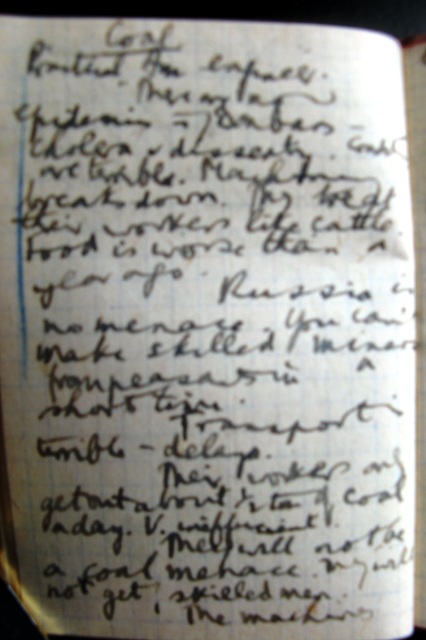 Coal
Practical for engineer.
There are
epidemics in Donbass -
cholera & dysentry. Conditions
are terrible. Machinery
breaks down. They treat
their workers like cattle.
Food is worse than a
year ago. Russia is
no menace. You can't
make skilled miners
from peasants in a
short time.
Transport is
terrible - delays.
Their workers only
get out about ton of coal
a day. V. inefficient.
They will not be
a coal menace. They will
not get skilled men.
The machines